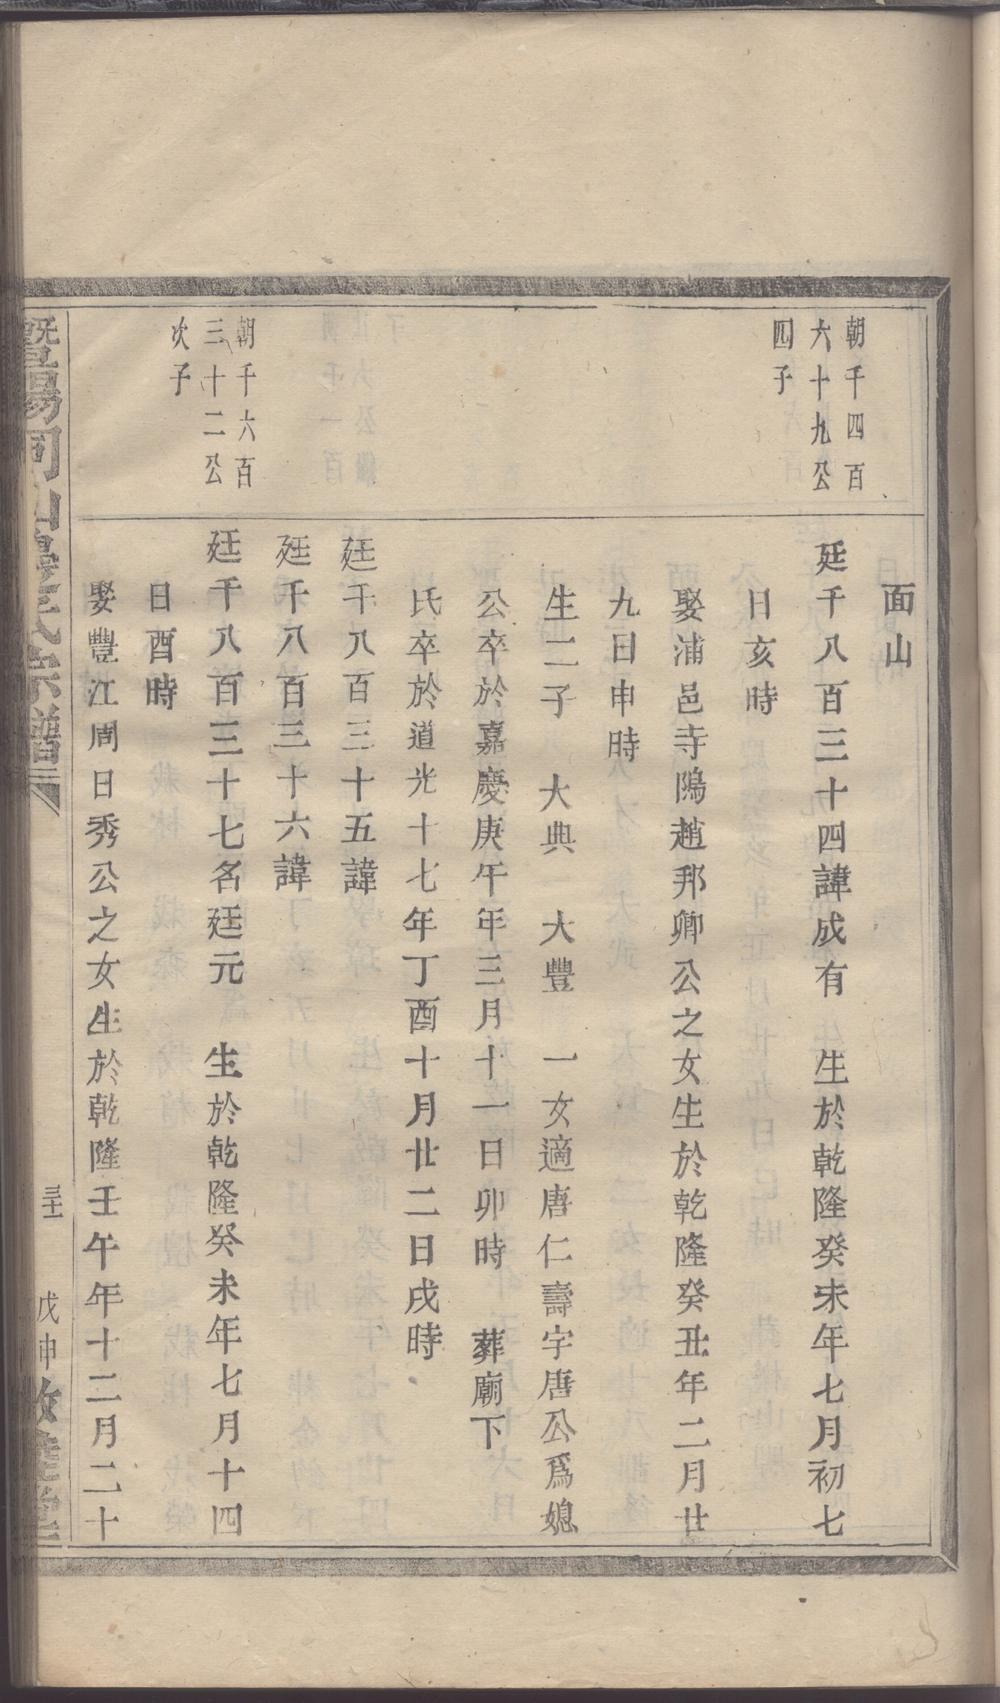 面山
朝千四百
六十九公
四子
廷千八百三十四諱成有　生於乾隆癸未年七月初七
日亥時
娶浦邑寺隝趙邦卿公之女生於乾隆癸丑年二月廿
九日申時
生二子　大典　大豐　一女適唐仁壽字唐公爲媳
公卒於嘉慶庚午年三月十一日卯時　葬廟下
氏卒於道光十七年丁酉十月廿二日戌時
廷千八百三十五諱
廷千八百三十六諱
朝千六百
三十二公
次子
廷千八百三十七名廷元　生於乾隆癸未年七月十四
日酉時
娶豐江周日秀公之女生於乾隆壬午年十二月二十
暨陽同山邊氏宗譜
三十一
戊申